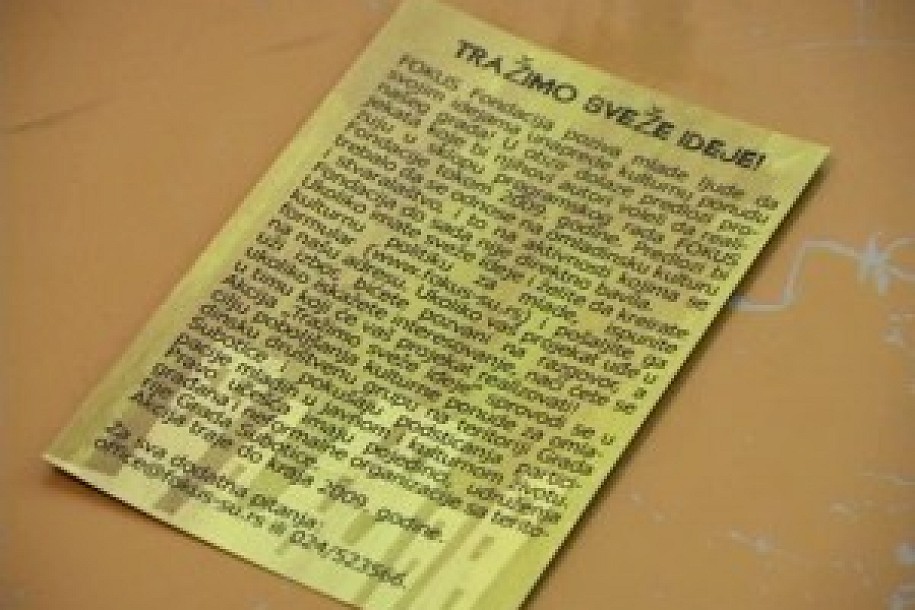 TRAŽIMO SVEŽE IDEJE!
FOKUS Fondacija poziva mlade ljude da
svojim idejama unaprede kulturnu ponudu
našeg grada! U obzir dolaze predlozi pro-
jekata koje bi njihovi autori voleli da reali-
zuju u sklopu programskog rada FOKUS
Fondacije tokom 2009. godine. Predlozi bi
trebalo da se odnose na omladinsku kulturu
i stvaralaštvo, i to na aktivnosti kojima se
Fondacija do sada nije direktno bavila.
Ukoliko imate sveže ideje i želite da kreirate
kulturnu politiku za mlade, ispunite
formular (www.fokus-su.rs) i pošaljite ga
na našu adresu. Ukoliko vaš projekat uđe u
uži izbor, bićete pozvani na razgovor, a
ukoliko iskažete interesovanje, naći ćete se
u timu koji će vaš projekat realizovati!
Akcija "Tražimo sveže ideje" sprovodi se u
cilju poboljšanja kulturne ponude za omla-
dinsku društvenu grupu na teritoriji Grada
Subotice i pokušaju podsticanja partici-
pacije mladih u javnom i kulturnom životu.
Pravo učešća imaju pojedinci, udruženja
građana i neformalne organizacije sa terito-
rije Grada Subotice.
Akcija traje do kraja 2009. godine.
Za sva dodatna pitanja:
office@fokus-su.rs ili 024/523566.